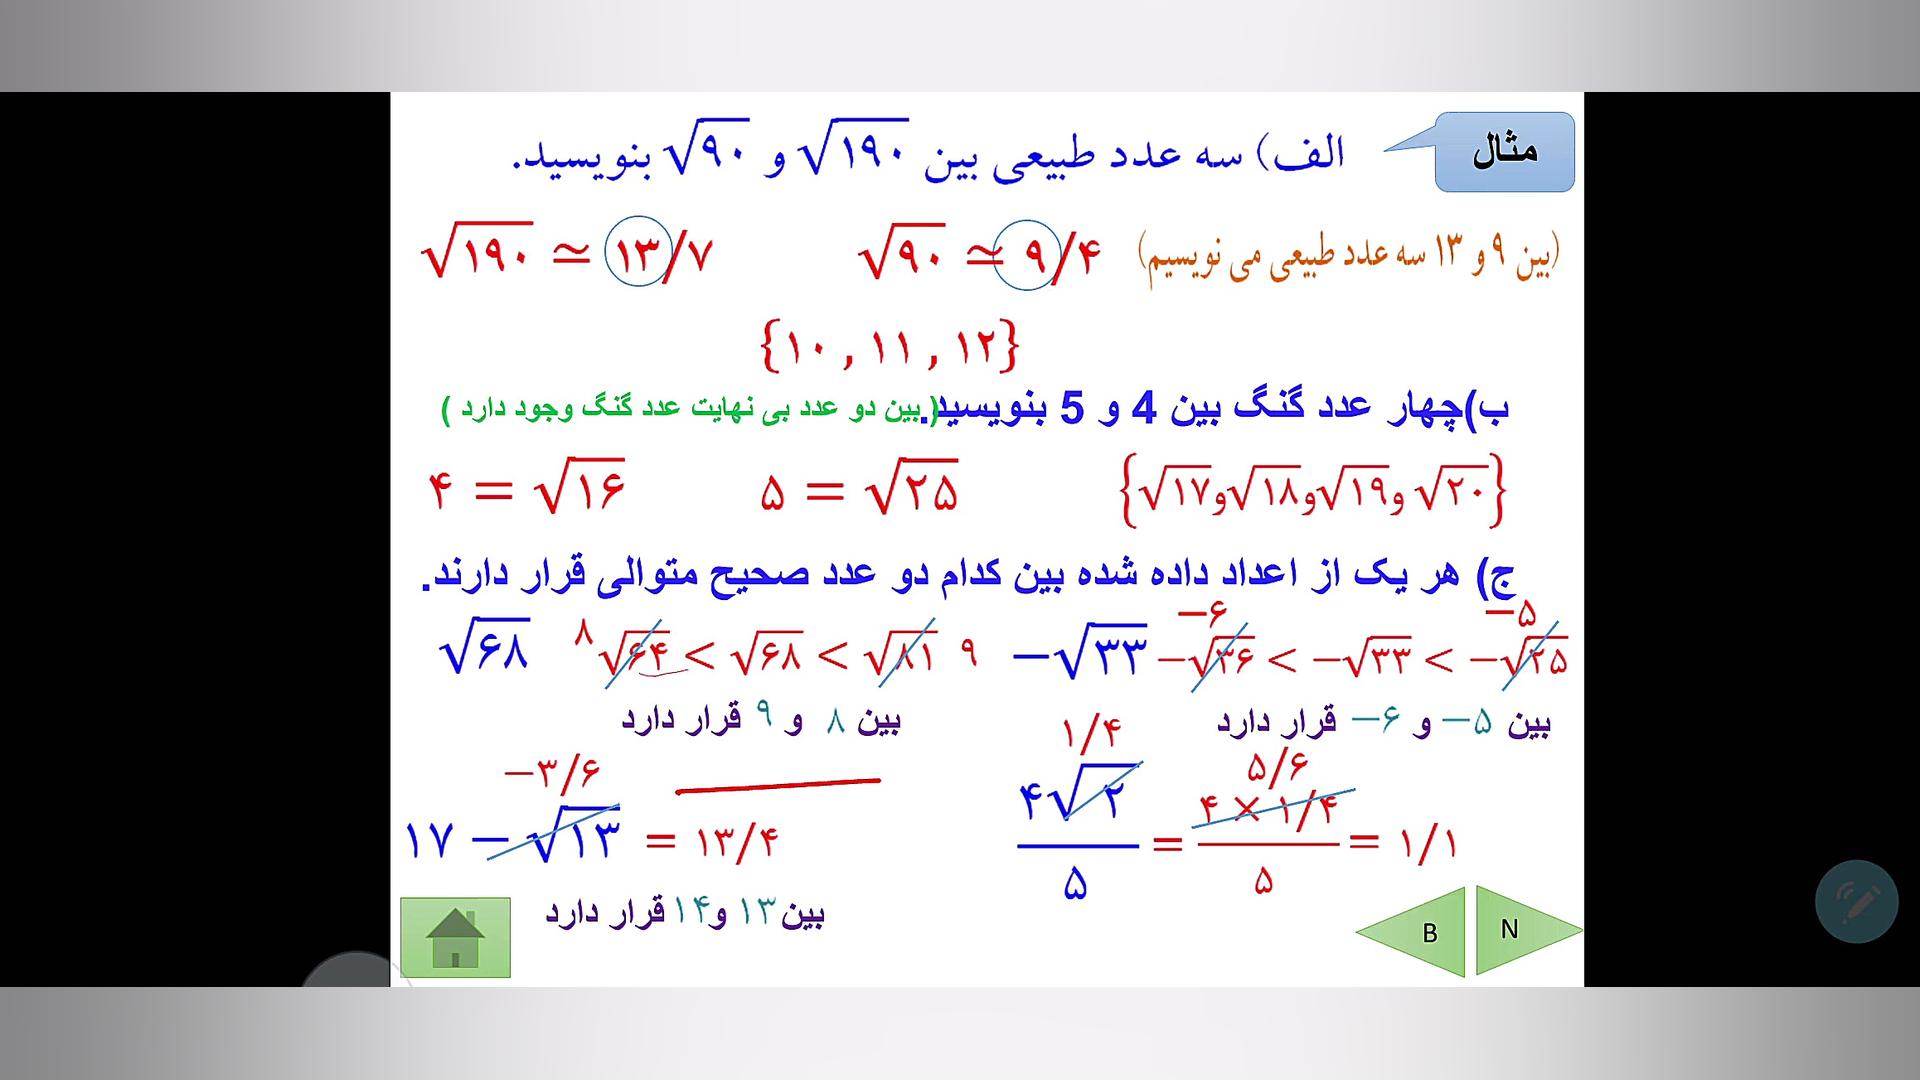 مثال
الف) سه عدد طبیعی بین √۱۹۰ و √۹۰ بنویسید.
(بین ۹ و ۱۳ سه عدد طبیعی می نویسیم) √۹۰ ≃ ۹/۴ √۱۹۰ ≃ ۱۳/۷
{۱۰ , ۱۱ , ۱۲}
ب)چهار عدد گنگ بین 4 و 5 بنویسید. ( بین دو عدد بی نهایت عدد گنگ وجود دارد )
۴ = √۱۶ ۵ = √۲۵ {√۱۷و√۱۸و√۱۹و √۲۰}
ج) هر یک از اعداد داده شده بین کدام دو عدد صحیح متوالی قرار دارند.
−۶ −۵
√۶۸ ۸ √۶۴ < √۶۸ < √۸۱ ۹ −√۳۳ −√۳۶ < −√۳۳ < −√۲۵
بین ۵− و ۶− قرار دارد بین ۸ و ۹ قرار دارد
−۳/۶ ۱/۴ ۵/۶
۱۷ − √۱۳ = ۱۳/۴ ۴√۲ / ۵ = ۴ × ۱/۴ / ۵ = ۱/۱
بین ۱۳ و۱۴ قرار دارد
B N